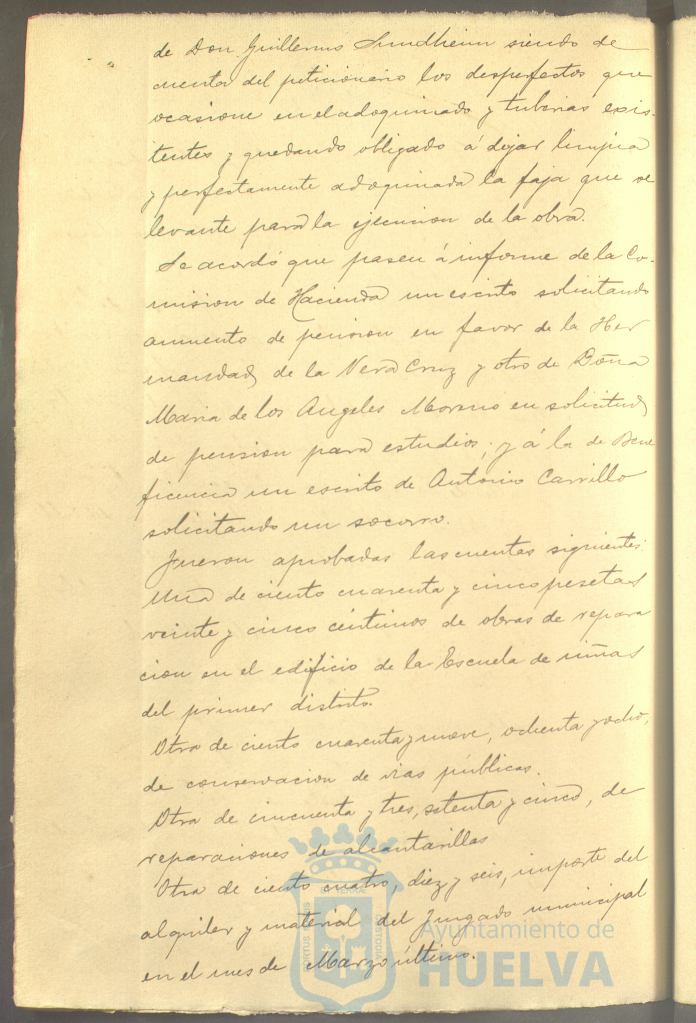 de Don Guillermo Sundheim siendo de
cuenta del peticionario los desperfectos que
ocasione en el adoquinado y tuberias exis-
tentes y quedando obligado á dejar limpia
y perfectamente adoquinada la faja que se
levante para la ejecucion de la obra.
Se acordó que pasen á informe de la Co-
mision de Hacienda un escrito solicitando
aumento de pension en favor de la Her
mandad de la Vera Cruz y otro de Doña
Maria de los Angeles Moreno en solicitud
de pension para estudios; y á la de Bene
ficencia un escrito de Antonio Carrillo
solicitando un socorro.
Fueron aprobadas las cuentas siguientes:
Una de ciento cuarenta y cinco pesetas
veinte y cinco céntimos de obras de repara
cion en el edificio de la Escuela de niñas
del primer distrito.
Otra de ciento cuarenta y nueve, ochenta y ocho,
de conservacion de vias públicas.
Otra de cincuenta y tres, setenta y cinco, de
reparaciones de alcantarillas
Otra de ciento cuatro, diez y seis, importe del
alquiler y material del Juzgado municipal
en el mes de Marzo último.
Ayuntamiento de
HUELVA